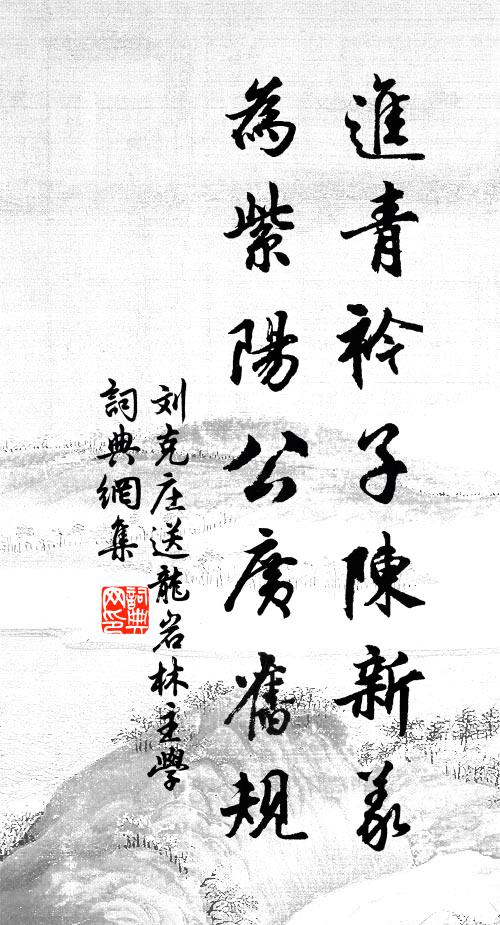 進青衿子陳新義
為紫陽公廣舊規
刘克庄送龍岩林主學
詞典網集
詞典
网印